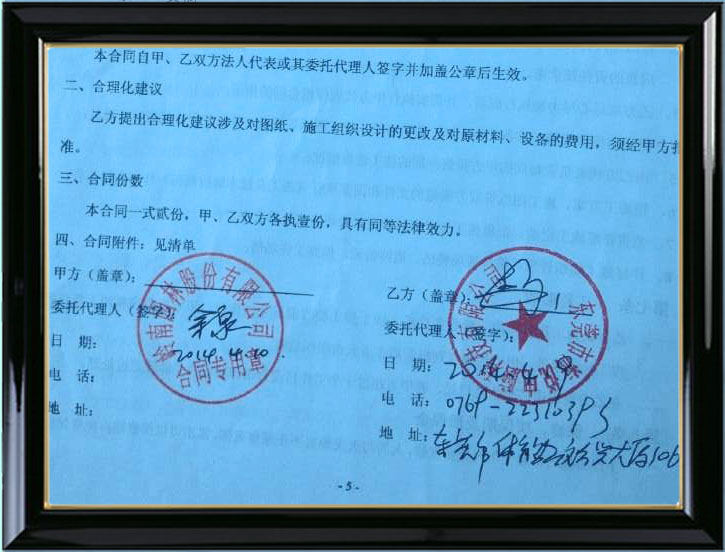 本合同自甲、乙双方法人代表或其委托代理人签字并加盖公章后生效。
二、合理化建议
乙方提出合理化建议涉及对图纸、施工组织设计的更改及对原材料、设备的费用，须经甲方
准。
三、合同份数
本合同一式贰份，甲、乙双方各执壹份，具有同等法律效力。
四、合同附件：见清单
甲方（盖章）：
委托代理人（签字）：
日 期： 2014.4.10
电 话：
地 址：
股份有限公司
合同专用章
乙方（盖章）：
委托代理人（签字）：
日 期：
电 话： 0769-22310393
地 址：
东莞市
-5-